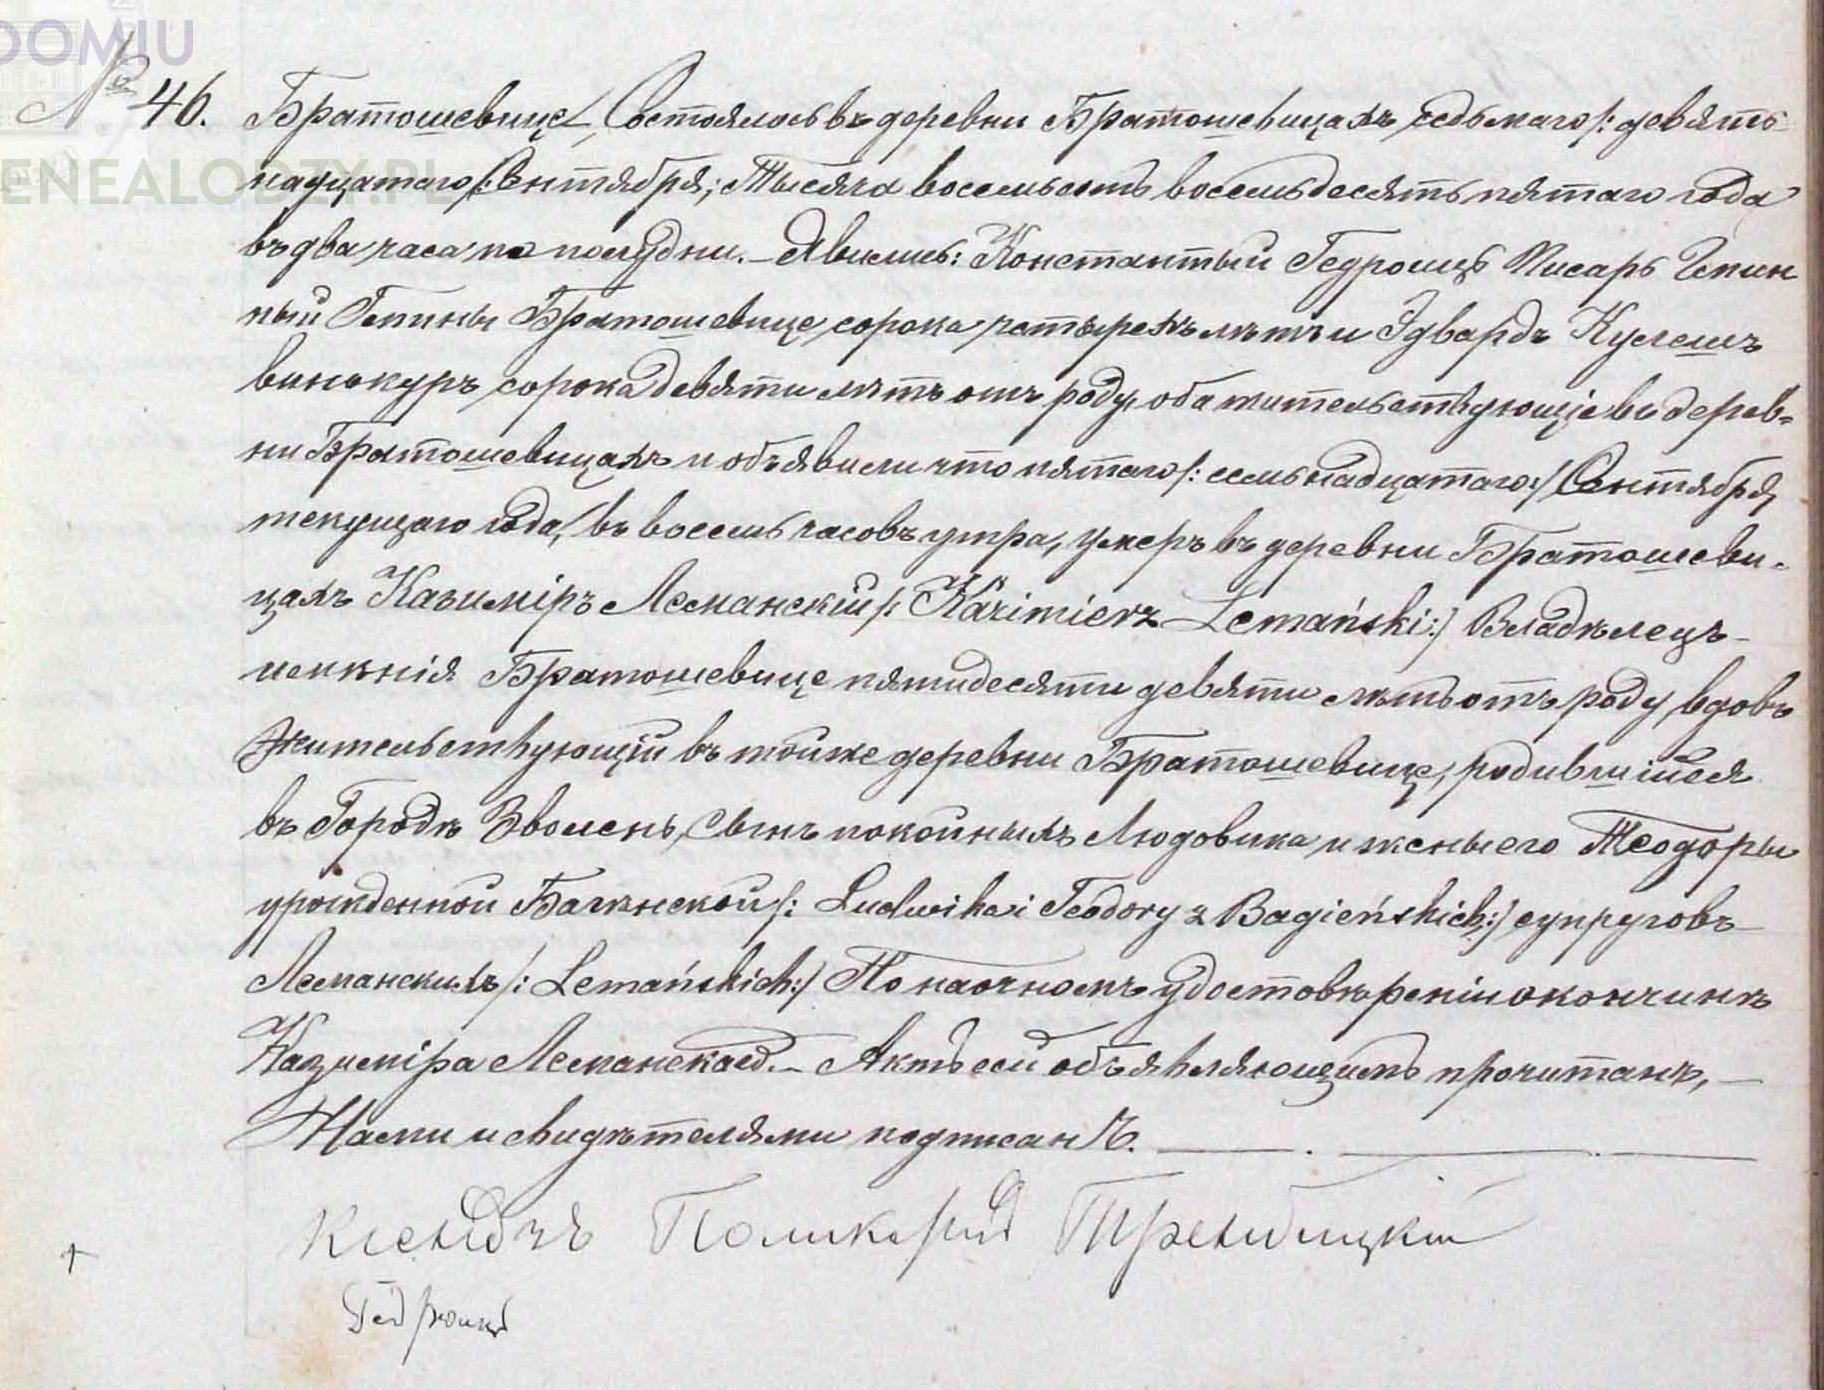 DOMIU
GENEALODZY.PL
№ 46. Братошевице, Состоялось въ деревни Братошевицахъ седьмаго /: девять
надцатаго :/ Сентября, Тысяча восемьсотъ восемьдесятъ пятаго года
въ два часа по полудни. – Явились: Константый Гедройцъ Писарь Гмин
ный Гмины Братошевице, сорока четырехъ лѣтъ и Эдвардъ Кулешъ
винокуръ, сорока девяти лѣтъ отъ роду, оба жительствующіе въ дерев-
ни Братошевицахъ и объявили что пятаго /: семьнадцатаго :/ Сентября,
текущаго года, въ восемь часовъ утра, умеръ въ деревни Братошеви-
цахъ Казимиръ Леманскій /: Kazimierz Lemański :/ Владѣлецъ
имѣнія Братошевице пятидесяти девяти лѣтъ отъ роду, вдовъ
жительствующій въ тойже деревни Братошевице, родившійся
въ Городѣ Зволень, сынъ покойныхъ Людовика и жены его Теодоры
урожденной Багѣнской /: Ludwika i Teodory z Bagieńskich :/ супруговъ
Леманскихъ /: Lemańskich :/ По наочномъ удостовѣреніи о кончинѣ
Казимiра Леманскаго. – Актъ сей объявляющимъ прочитанъ, –
Нами и свидѣтелями подписанъ.
Ксендзъ Поликарпъ Трембицкій
Гедройцъ